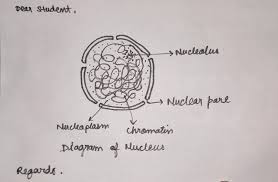 Dear Student.
Nucleolus
Nuclear pore
Nucleoplasm
Chromatin
Diagram of Nucleus
Regards.